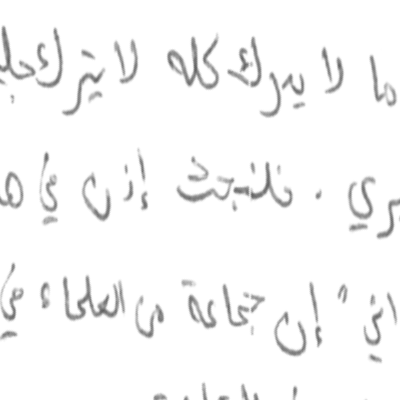 ما لا يدرك كله لا يترك جله
. فلنبحث إذن في
" إن جماعة من العلماء في